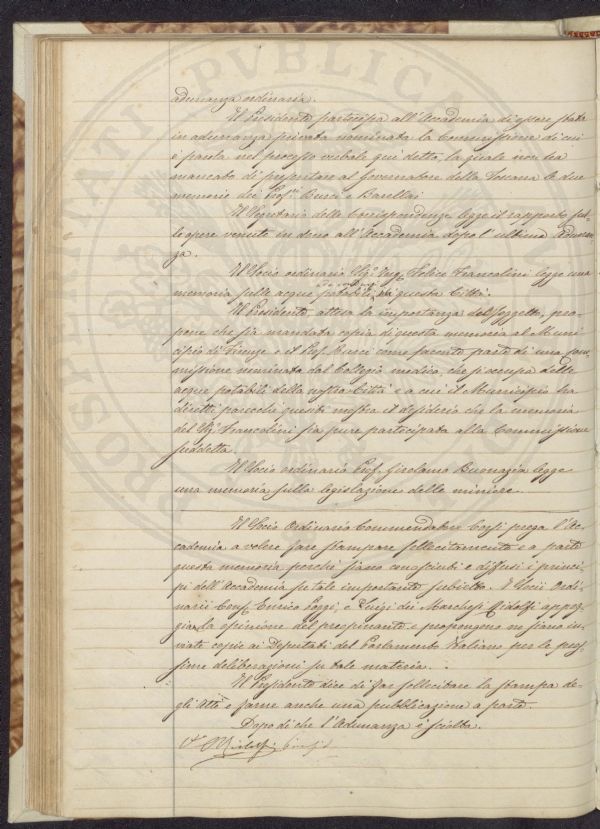 adunanza ordinaria.
Il Presidente partecipa all'Accademia di essere stata
in adunanza privata nominata la Commissione di cui
è parola nel processo verbale qui detto, la quale non ha
mancato di presentare al Governatore della Toscana le due
memorie dei Prof.ri Cuppari e Barellai
Il Segretario delle Corrispondenze legge il rapporto sul-
le opere venute in dono all'Accademia dopo l'ultima Adunan-
za.
Il Socio ordinario Sig.r Ing. Felice Francolini legge una
memoria sulle acque potabili di questa Città.
Il Presidente, attesa la importanza del soggetto, pro-
pone che sia mandata copia di questa memoria al Muni-
cipio di Firenze e il Prof. Bucci come facente parte di una Com-
missione nominata dal Collegio medico, che si occupa delle
acque potabili della nostra Città e a cui il Municipio ha
diretti parecchi quesiti mostra il desiderio che la memoria
del Sig. Francolini sia pure partecipata alla Commissione
suddetta.
Il Socio ordinario Prof. Girolamo Buonazia legge
una memoria sulla legislazione delle miniere.
Il Socio Ordinario Commendatore Corsi prega l'Ac-
cademia a volere fare stampare sollecitamente e a parte
questa memoria perché siano conosciuti e diffusi i princi-
pi dell'Accademia su tale importante subietto. I Socii Ordi-
narii Conf. Enrico Poggi, e Luigi dei Marchesi Ridolfi appog-
giano la opinione del preopinante e propongono ne siano in-
viate copie ai Deputati del Parlamento Italiano per le pros-
sime deliberazioni su tale materia.
Il Presidente dice di far sollecitare la stampa de-
gli Atti e farne anche una pubblicazione a parte.
Dopo di che l'Adunanza è sciolta.
C. Ridolfi
PROSPERITATI PVBLICAE